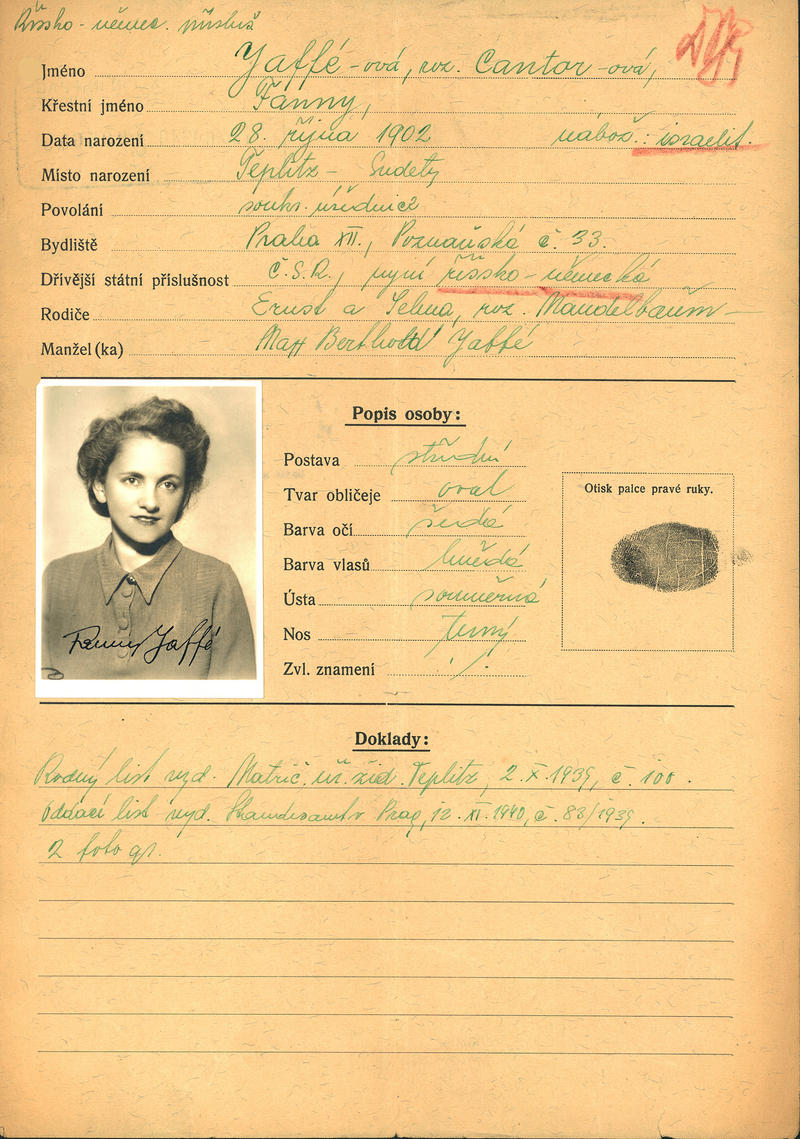 Říšsko-němec. přísluš.
Jméno Jaffé-ová, roz. Cantor-ová,
Křestní jméno Fanny,
Data narození 28. října 1902 nábož.: israelit.
Místo narození Teplitz- Sudety
Povolání soukr. úřednice
Bydliště Praha XII., Poznaňská č. 33.
Dřívější státní příslušnost Č.S.R., nyní říšsko-německá
Rodiče Ernst a Selma, roz. Mandelbaum-
Manžel (ka) Max Berthold Jaffé
Popis osoby:
Postava střední
Tvar obličeje oval
Barva očí šedá
Barva vlasů hnědá
Ústa souměrná
Nos
Zvl. znamení ./.
Otisk palce pravé ruky.
Fanny Jaffé
Doklady:
Rodný list vyd. Matrič. úř. žid. Teplitz, 2.X.1939, č. 100.
Oddací list vyd. Standesamt v Prag, 12.XI.1940, č. 83/1939.
2 fotogr.